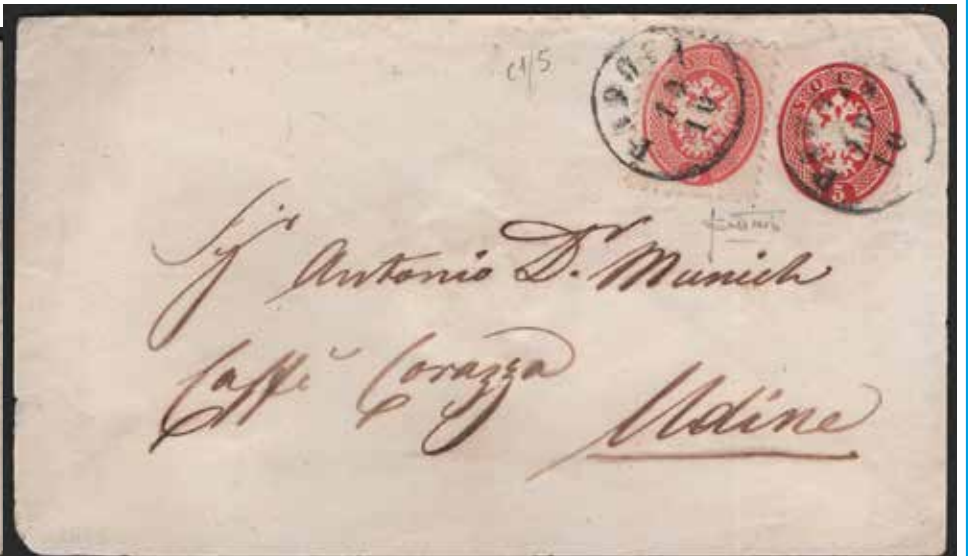 c1/5
PADOVA
10
10
SOLDI
5
PADOVA
10
10
Sigr Antonio Dr. Munich
Caffè Corazza
Udine